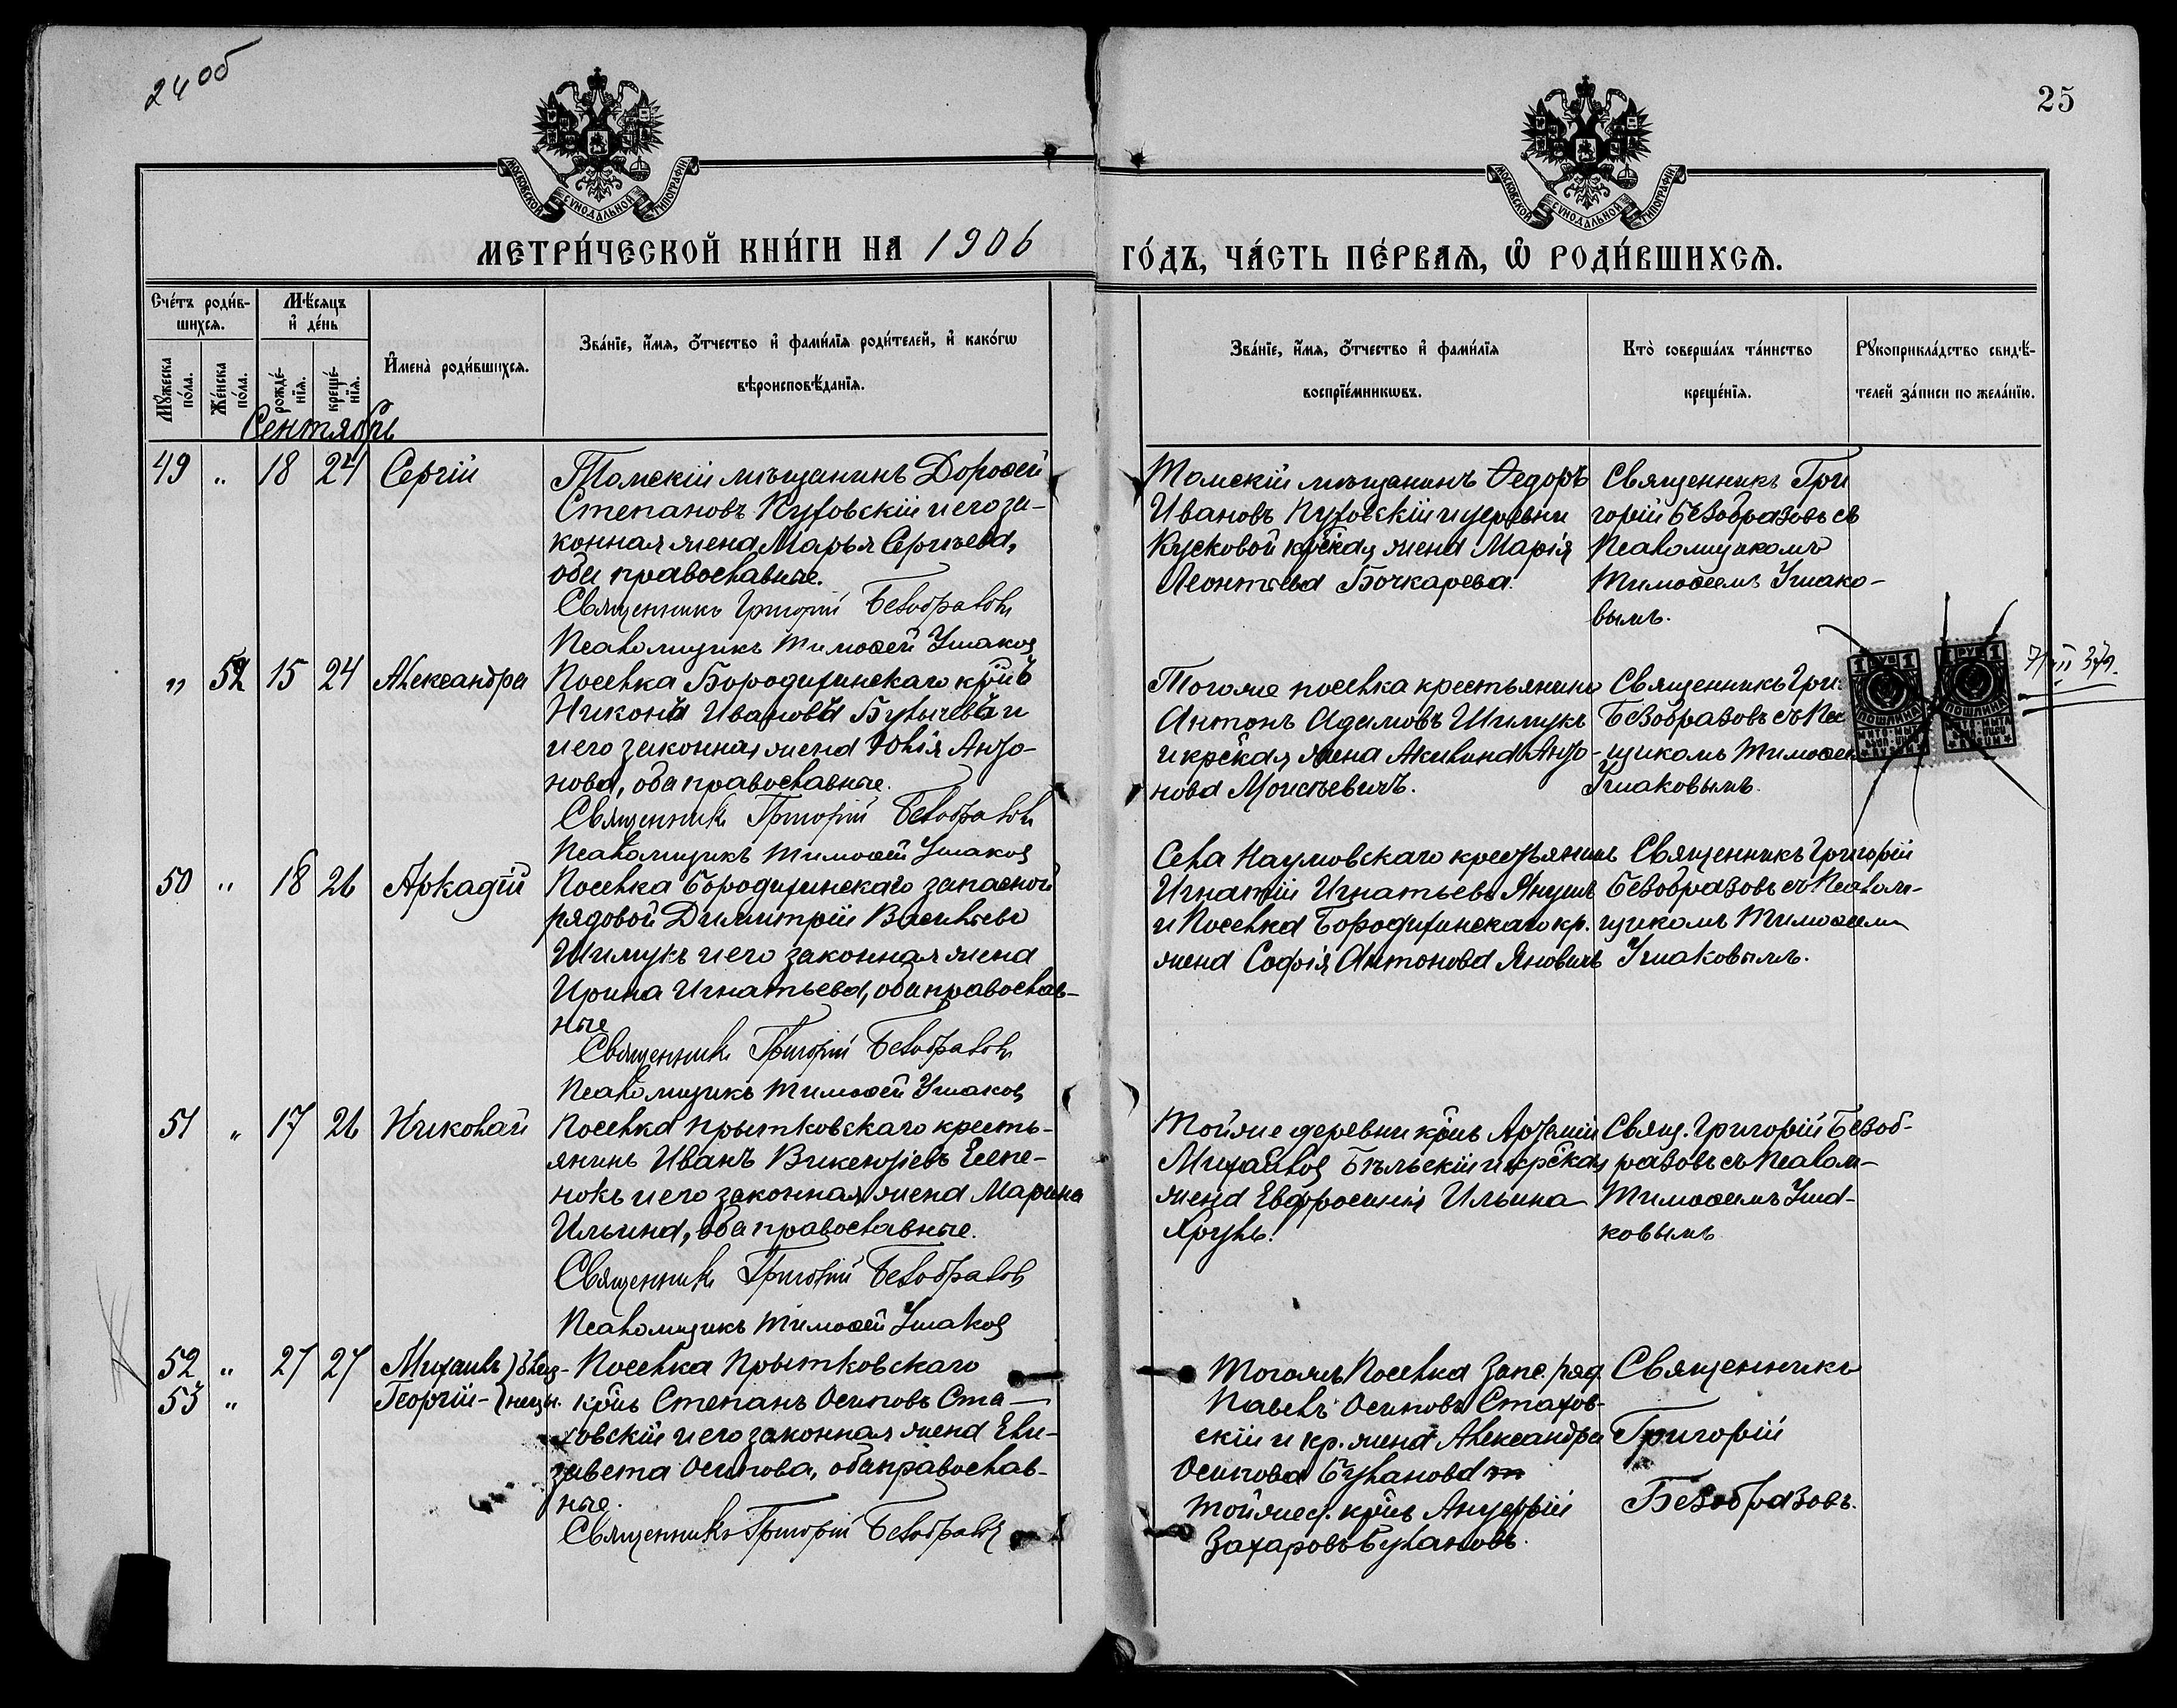 24 об
25
МОСКОВСКОЙ СѴНОДАЛЬНОЙ ТИПОГРАФІИ
МОСКОВСКОЙ СѴНОДАЛЬНОЙ ТИПОГРАФІИ
МЕТРИ́ЧЕСКОЙ КНИ́ГИ НА 1906
ГО́ДЪ, ЧА́СТЬ ПЕ́РВАѦ, Ѡ҆ РОДИ́ВШИХСѦ.
Сче́тъ роди́в-
шихсѧ.
Мꙋ́жеска
по́ла.
Же́нска
по́ла.
Мѣ́сѧцъ
и҆ де́нь
рожде́-
нїѧ.
креще́-
нїѧ.
И҆мена̀ роди́вшихсѧ.
Зва́нїе, и҆́мѧ, ѻ҆́тчество и҆ фами́лїѧ роди́телей, и҆ како́гѡ
вѣроисповѣ́данїѧ.
Зва́нїе, и҆́мѧ, ѻ҆́тчество и҆ фами́лїѧ
воспрїе́мникѡвъ.
Кто̀ соверша́лъ та́инство
креще́нїѧ.
Рꙋкоприкла́дство свидѣ́-
телей за́писи по жела́нїю.
Сентябрь
49 " 18 24 Сергій
Томскій мѣщанинъ Дороѳей
Степановъ Пуховскій и его за-
конная жена Марья Сергѣева,
оба православные.
Священникъ Григорій Безобразовъ
Псаломщикъ Тимоѳей Ушаков
Томскій мѣщанинъ Ѳедоръ
Ивановъ Пуховскій и деревни
Кусковой кр̃ская жена Марія
Леонтьева Бочкарева.
Священникъ Гри
горій Безобразовъ съ
Псаломщикомъ
Тимоѳеемъ Ушако-
вымъ.
" 52 15 24 Александра
Поселка Бородихинскаго кр̃нъ
Ивановъ
и его законная жена Юлія Анто-
нова, оба православные.
Священникъ Григорій Безобразовъ
Псаломщикъ Тимоѳей Ушаков
Тогоже поселка крестьянинъ
Антонъ Адамовъ Шимукъ
и кр̃ская жена Акилина Анто-
нова Моисѣевичъ.
Священникъ Гри.
Безобразовъ съ Пса
щикомъ Тимоѳеем
Ушаковымъ.
1 РУБ 1
ПОШЛИНА
1 РУБ 1
ПОШЛИНА
50 " 18 26 Аркадій
Поселка Бородихинскаго запасной
рядовой Димитрій Васильевъ
Шимукъ и его законная жена
Ирина Игнатьева, оба православ-
ные
Священникъ Григорій Безобразовъ
Псаломщикъ Тимоѳей Ушаков
Села Наумовскаго крестьянинъ
Игнатій Игнатьевъ
и Поселка Бородихинскаго кр.
жена Софія Антонова Яновичъ
Священникъ Григорій
Безобразовъ съ Псалом-
щикомъ Тимоѳеемъ
Ушаковымъ.
51 " 17 26 Николай
Поселка Прытковскаго кресть-
янинъ Иванъ Викентіевъ Есипе-
нокъ и его законная жена Марина
Ильина, оба православные.
Священникъ Григорій Безобразов
Псаломщикъ Тимоѳей Ушаков
Тойже деревни кр̃нъ Артемій
Михайлов Бѣльскій и кр̃ская
жена Евфросинія Ильина
Хруль.
Свящ. Григорій Безоб-
разовъ съ Псалом-
Тимоѳеемъ Уша-
ковымъ
52 " 27 27 Михаилъ } близ-
53 " Георгій - } нецы.
Поселка Прытковскаго
кр̃нъ Степанъ Осиповъ Ста-
ховскій и его законная жена Ели-
завета Осипова, оба православ-
ные.
Священникъ Григорій Безобразов
Тогожъ Поселка Запс. ряд.
Павелъ Осиповъ Стахов-
скій и кр. жена Александра
Осипова Буланова
Тойжед. кр̃нъ
Захаровъ Булановъ.
Священникъ
Григорій
Безобразовъ.